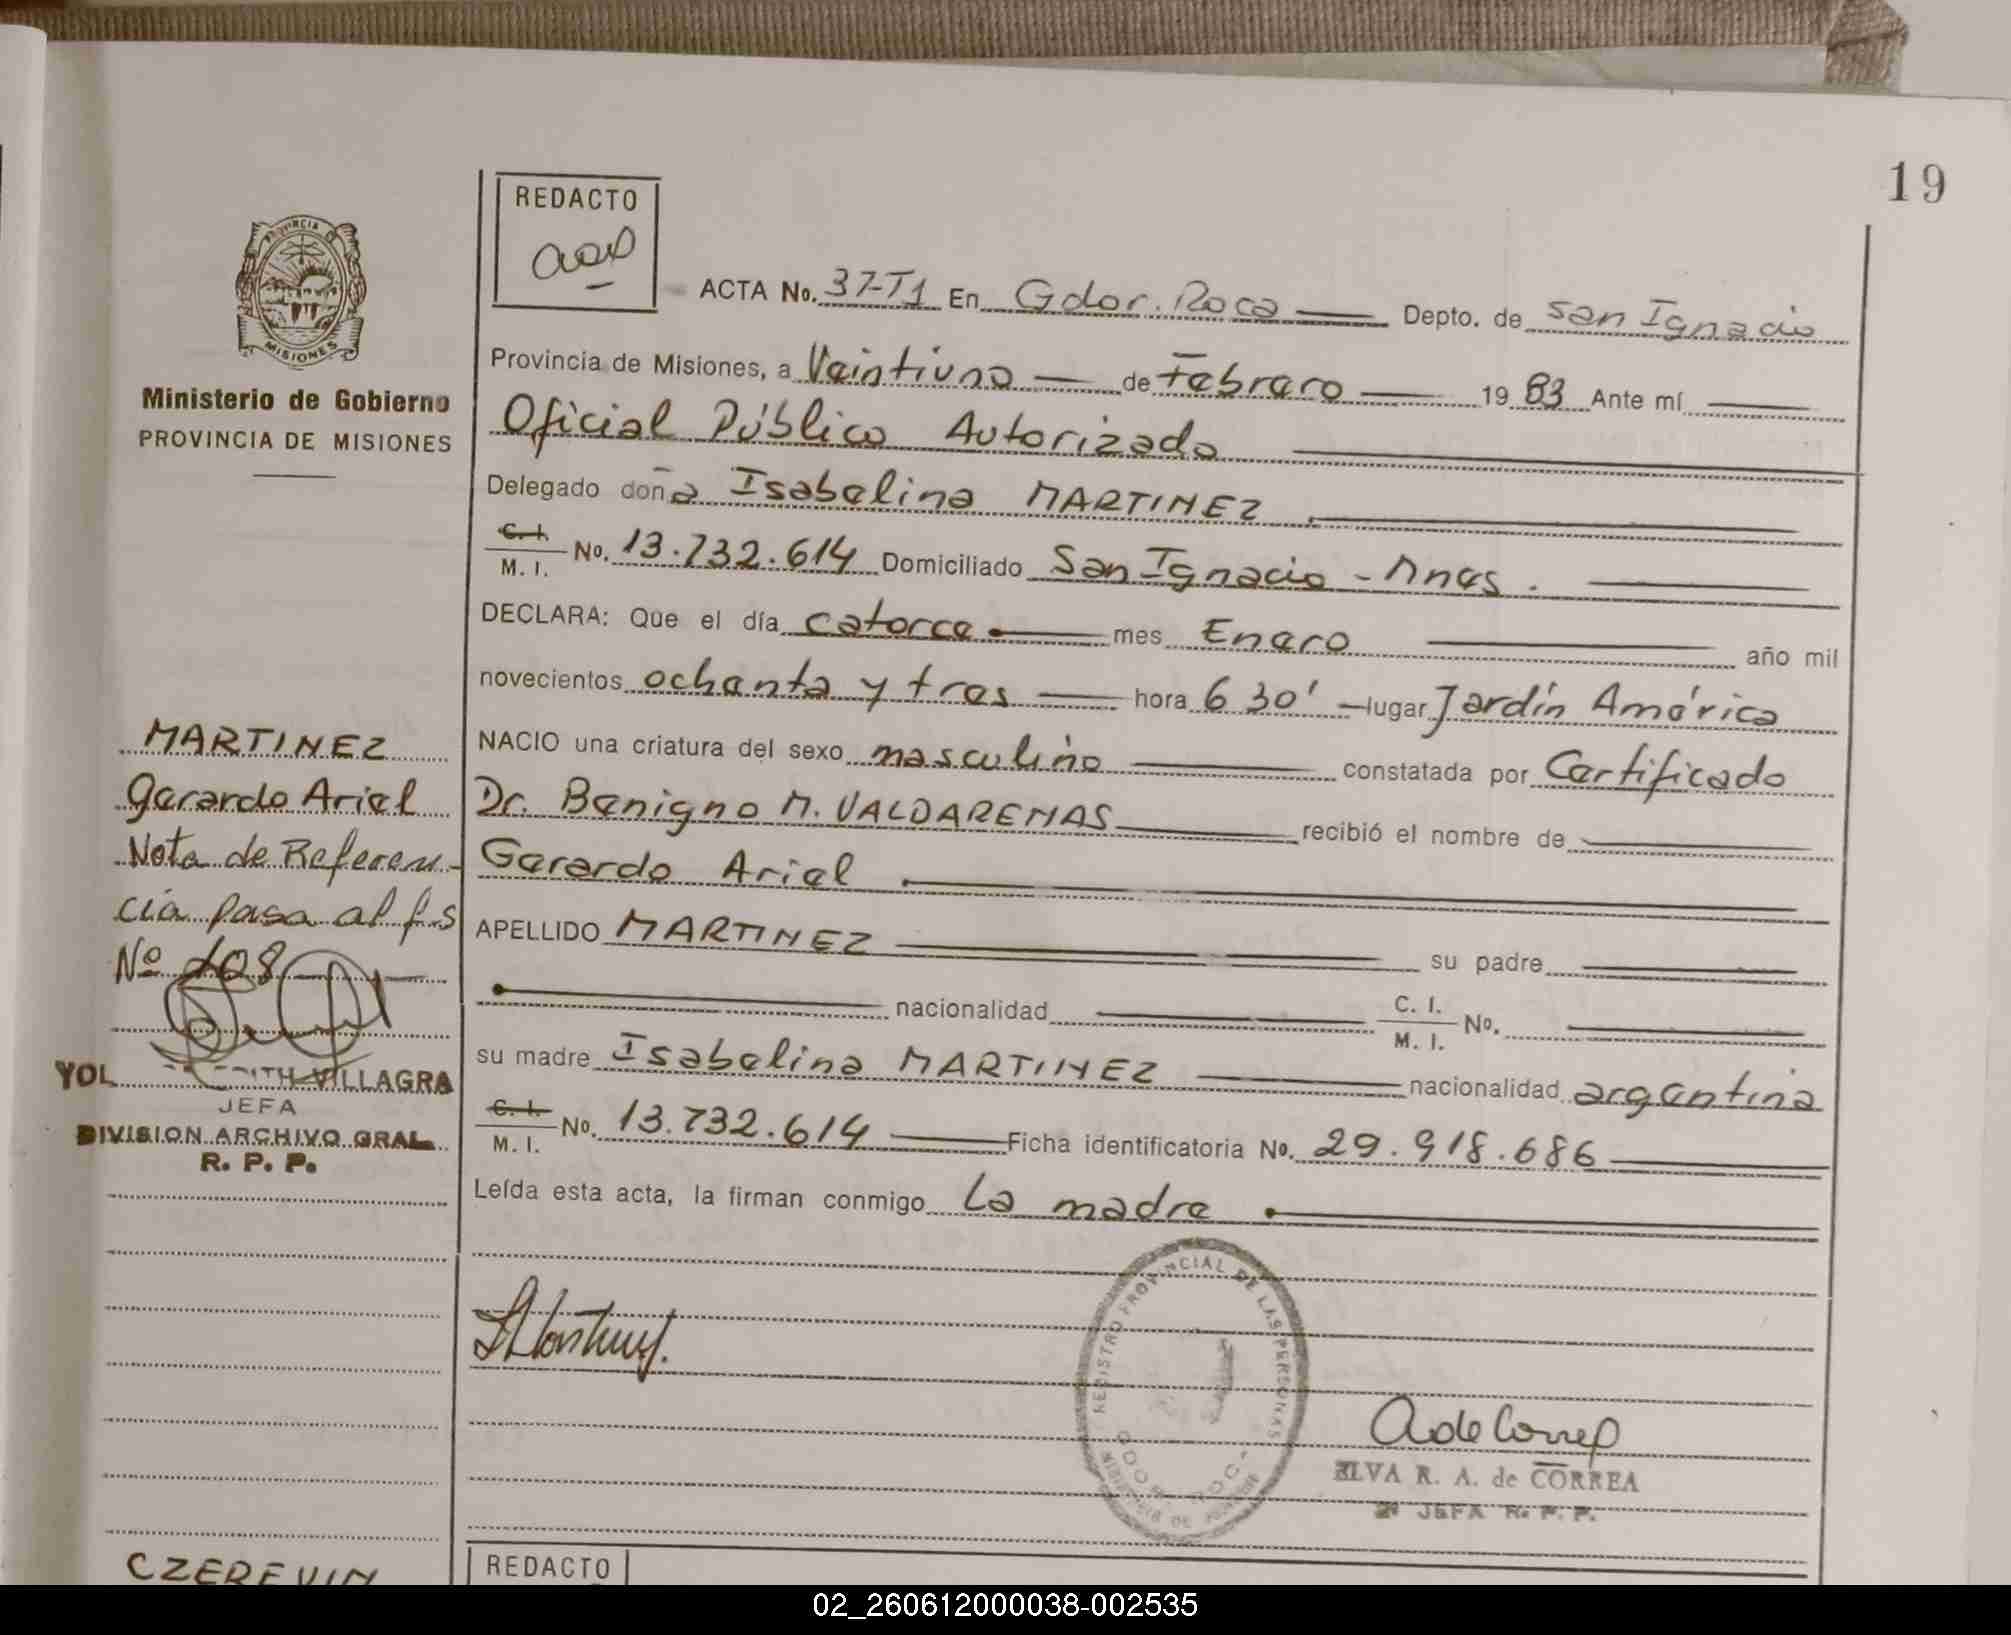 19
REDACTO
PROVINCIA DE
MISIONES
Ministerio de Gobierno
PROVINCIA DE MISIONES
ACTA No. 37-T1 En Gdor. Roca Depto. de San Ignacio
Provincia de Misiones, a Veintiuno de Febrero 19 83 Ante mí
Oficial Público Autorizado
Delegado doña Isabelina MARTINEZ
C. I. M. I. No. 13.732.614 Domiciliado San Ignacio - Mnes.
DECLARA: Que el día catorce mes Enero año mil
novecientos ochenta y tres hora 6 30' lugar Jardín América
NACIO una criatura del sexo masculino constatada por Certificado
Dr. Benigno M. VALDARENAS recibió el nombre de
Gerardo Ariel
APELLIDO MARTINEZ su padre
nacionalidad C. I. M. I. No.
su madre Isabelina MARTINEZ nacionalidad argentina
C. I. M. I. No. 13.732.614 Ficha identificatoria No. 29.918.686
Leída esta acta, la firman conmigo La madre
MARTINEZ
Gerardo Ariel
Nota de Referen-
cia pasa al fs
Nº 108
YOL VILLAGRA
JEFA
DIVISION ARCHIVO GRAL
R. P. P.
REGISTRO PROVINCIAL DE LAS PERSONAS
A de Correa
ELVA R. A. de CORREA
JEFA R. P. P.
REDACTO
02_260612000038-002535